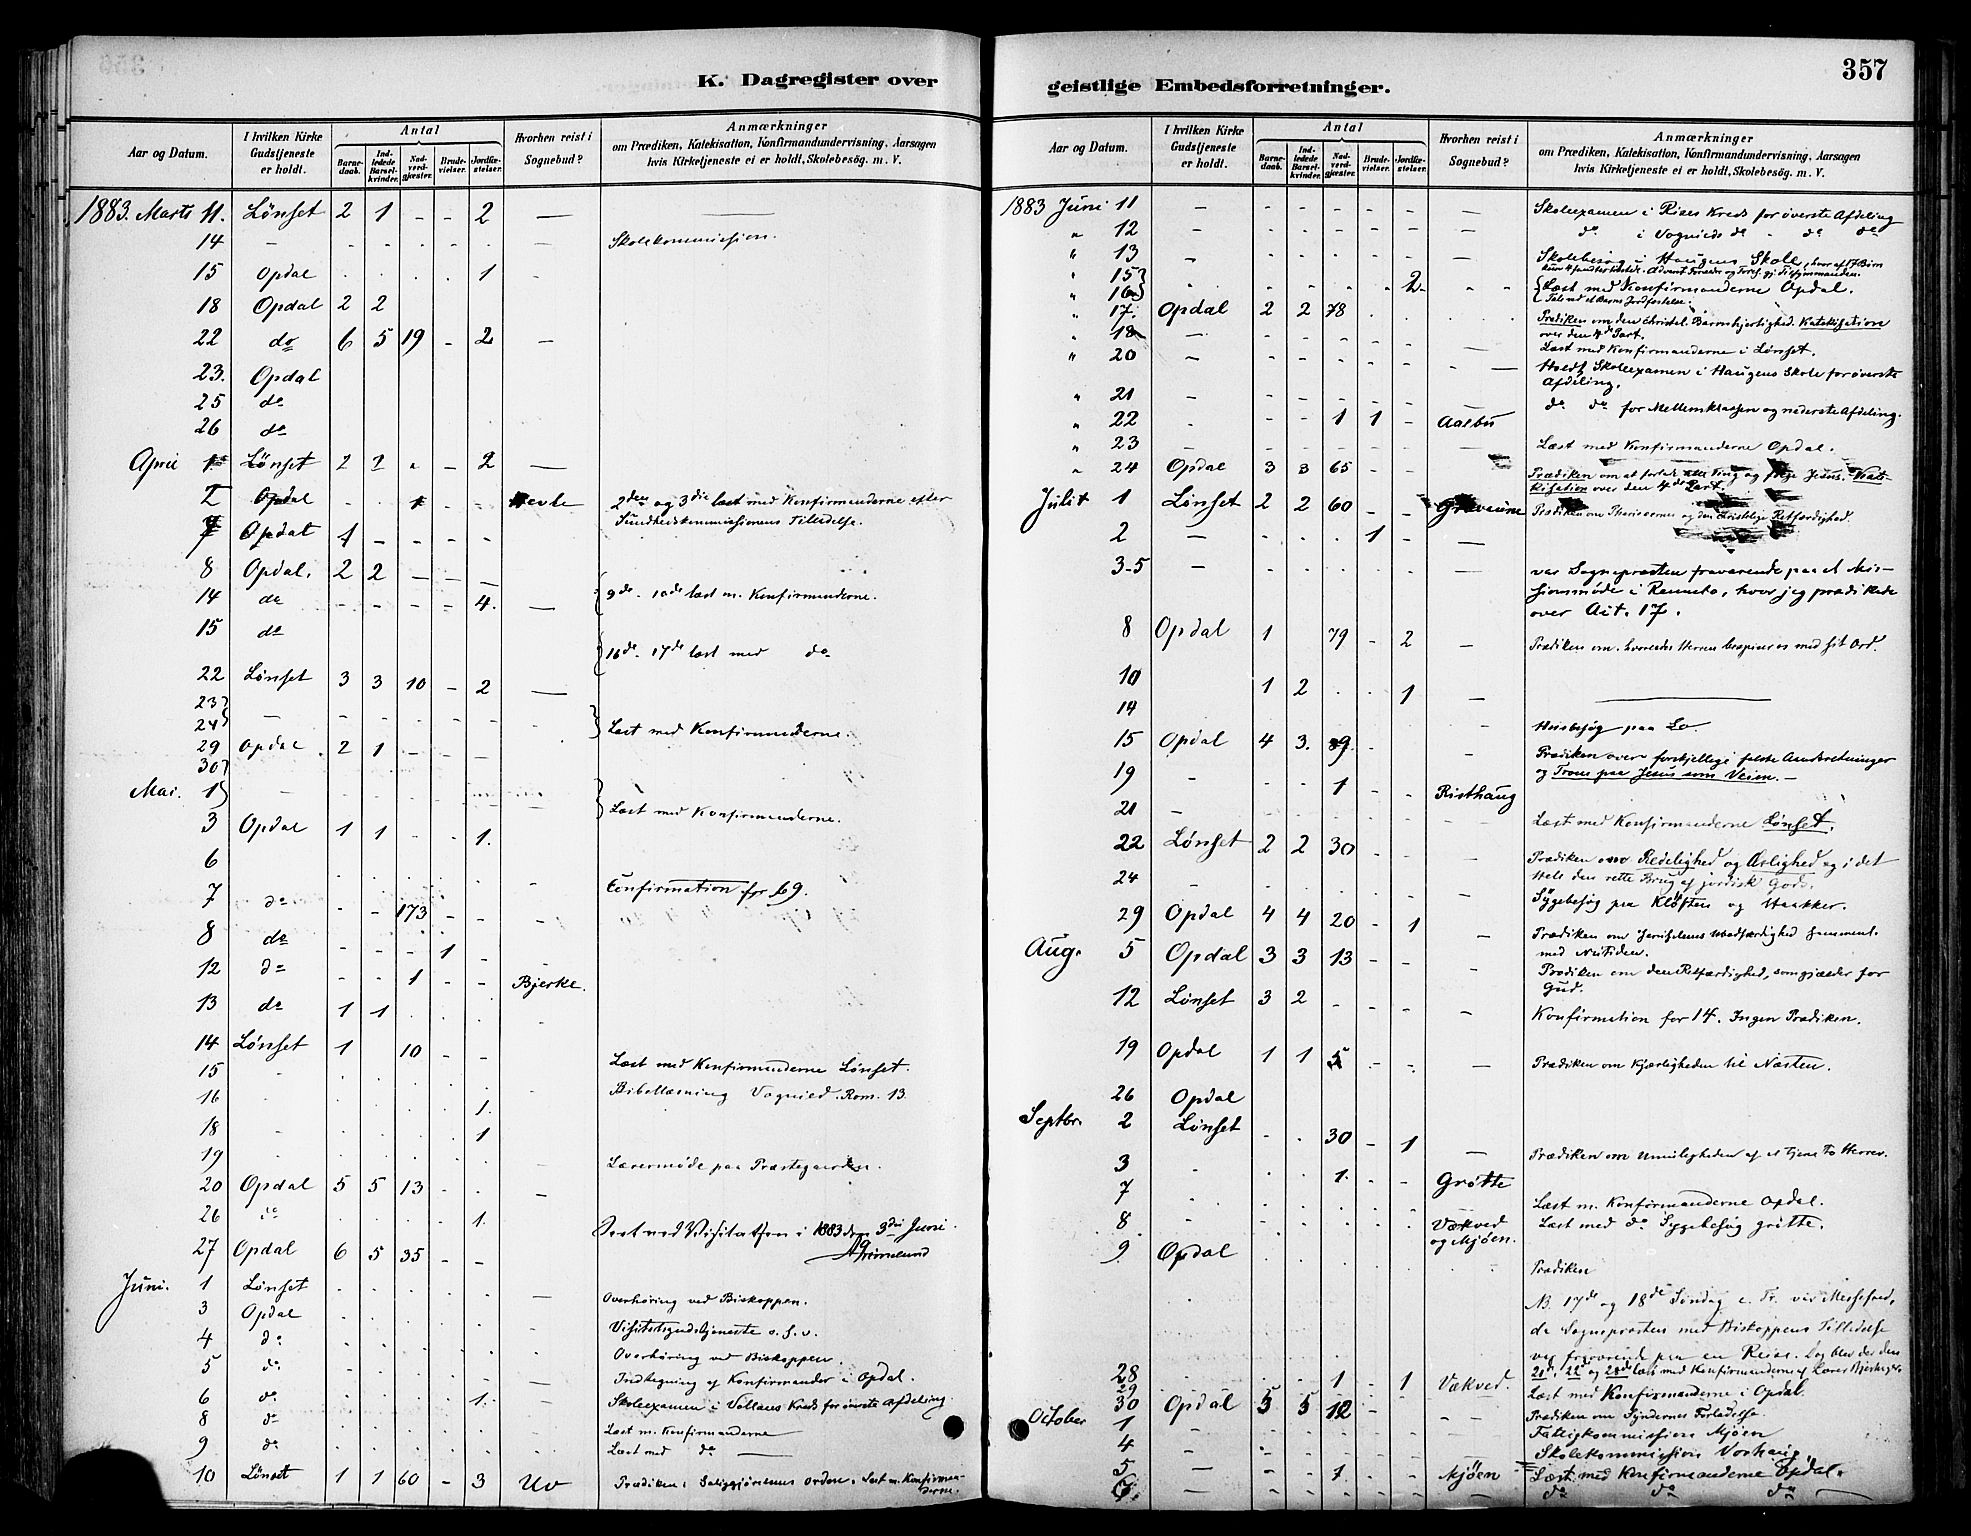 K. Dagregister over
Aar og Datum.
I hvilken Kirke Gudstjeneste er holdt.
Antal
Barne-daab.
Ind-ledede Barsel-kvinder.
Nad-verd-gjæster.
Brude-vielser.
Jordfæ-stelser.
Hvorhen reist i Sognebud?
Anmærkninger
om Prædiken, Katekisation, Konfirmandundervisning, Aarsagen
hvis Kirketjeneste ei er holdt, Skolebesög. m. V.
1883. Marts 11. Lønset 2 1 - - 2 —
14 - Skolekommission.
15 Opdal 1
18 Opdal 2 2
22 do 6 5 19 - 2 —
23. Opdal
25 do
26 do
April 1 Lønset 2 2 - - 2 —
2 Opdal 1 2den og 3die læst med Konfirmanderne efter
Sundhedskommissionens Tilladelse.
7 Opdal 1 - - - -
8 Opdal. 2 2 - - -
14 do - - - - 4. — 9de - 10de læst m. Konfirmanderne.
15 do
16de - 17de læst med do
22 Lønset 3 3 10 - 2 —
23
24 - Læst med Konfirmanderne.
29 Opdal 2 1 - -
30
Mai. 1 - Læst med Konfirmanderne.
3 Opdal 1 1 - - 1.
6
7 do - - 173 - - Confirmation for 69.
8 do - - - 1 -
12 do - - 1 - - Bjerke.
13 do 1 1
14 Lønset 1 10 - -
15 Læst med Konfirmanderne Lønset.
16 1. Bibellæsning Vognild. Rom. 13.
18 - 1
19 Lærermøde paa Præstegaarden.
20 Opdal 5 5 13 -
26 do 1.
Seet ved Visitatsen i 1883 den 3die Juni.
Grimelund
27 Opdal 6 5 35 - -
Juni. 1 Lønset Overhøring ved Biskoppen.
3 Opdal Visitatsgudstjeneste o. s. v.
4 do Overhøring ved Biskoppen.
5 do Indtegning af Konfirmander i Opdal.
6 do 1. Skoleexamen i Vollans Kreds for øverste Afdeling
8 do Læst m. Konfirmanderne
9 do Læst med do —
10 Lønset 1 1 60 - 3 Uv Prædiken: Saliggjørelsens Orden. Læst m. Konfirman-
derne.
geistlige Embedsforretninger.
357
Aar og Datum.
I hvilken Kirke Gudstjeneste er holdt.
Antal
Barne-daab.
Ind-ledede Barsel-kvinder.
Nad-verd-gjæster.
Brude-vielser.
Jordfæ-stelser.
Hvorhen reist i Sognebud?
Anmærkninger
om Prædiken, Katekisation, Konfirmandundervisning, Aarsagen
hvis Kirketjeneste ei er holdt, Skolebesög. m. V.
1883 Juni 11 - Skoleexamen i Rises Kreds for øverste Afdeling
" 12 - do i Vognilds do " do do
" 13 - Skolebesøg i Haugens Skole
" 15
" 16 2 Læst med Konfirmanderne Opdal.
Tale ved et Barns Jordfæstelse.
" 17. Opdal 2 2 78 Prædiken om den christel. Barmhjertighed. Katekisation
over den 4de Part.
" 18 - Læst med Konfirmanderne i Lønset.
" 20 - Holdt Skoleexamen i Haugens Skole for øverste
Afdeling.
" 21 - do do for Mellemklassen og nederste Afdeling.
" 22 1 1 - Aalbu
" 23 - Læst med Konfirmanderne Opdal.
" 24 Opdal 3 3 65 - - Prædiken om at forlade alle Ting og følge Jesus. Kate-
kisation over den 4de Part
Juli 1 Lønset 2 2 60 - - Prædiken om Pharisæernes og den christelige Retfærdighed.
2 - 1 -
3-5 - var Sognepræsten fraværende paa et Mis-
sionsmøde i Rennebo, hvor jeg prædikede
over Act. 17.
8 Opdal 1 79 - 2 - Prædiken om, hvorledes Herren bespiser os med sit Ord.
10 1 2 1 -
14 - Husbesøg paa Lo.
15 Opdal 4 3. 89. - Prædiken over forskjellige falske Anskretninger
og Troen paa Jesus som Veien. —
19 - 1 - - Risthaug
21 - Læst med Konfirmanderne Lønset.
22 Lønset 2 2 30 - - Prædiken om Redelighed og Ærlighed og i det
Hele den rette Brug af jordisk Gods.
24 - Sygebesøg paa Kløften og Haakker.
29 Opdal 4 4 20 - 1 - Prædiken om Jerusalems Ubodfærdighed sammenl.
med Nutiden.
Aug. 5 Opdal 3 3 13 - - Prædiken om den Retfærdighed, som gjælder for
Gud.
12 Lønset 3 2 - - - Konfirmation for 14. Ingen Prædiken.
19 Opdal 1 1 5 - - Prædiken om Kjærligheden til Næsten.
26 Opdal
Septbr. 2 Lønset 30 - 1 - Prædiken om Umuligheden af at tjene to Herrer.
3 1. - - Grøtte
7 Læst m. Konfirmanderne Opdal.
8 Vækved og Mjøen. Læst med do Sygebesøg Grøtte.
9. Opdal Prædiken
NB. 17de og 18de Søndag e. Tr. var Messefald,
da Sognepræsten med Biskoppens Tilladelse
var fraværende paa en Reise. Dog blev der den
21de, 22de og 28de læst med Konfirmanderne af Lærer
28 1 - 1 Vækved.
29 Læst med Konfirmanderne i Opdal.
30 Opdal 5 5 12 - Prædiken om Syndernes Forladelse
October 1 Fattigkommission Mjøen
4 - Skolekommission Vorhaug.
5 - 1 Mjøen Læst med Konfirmanderne Opdal.
6. - do do do